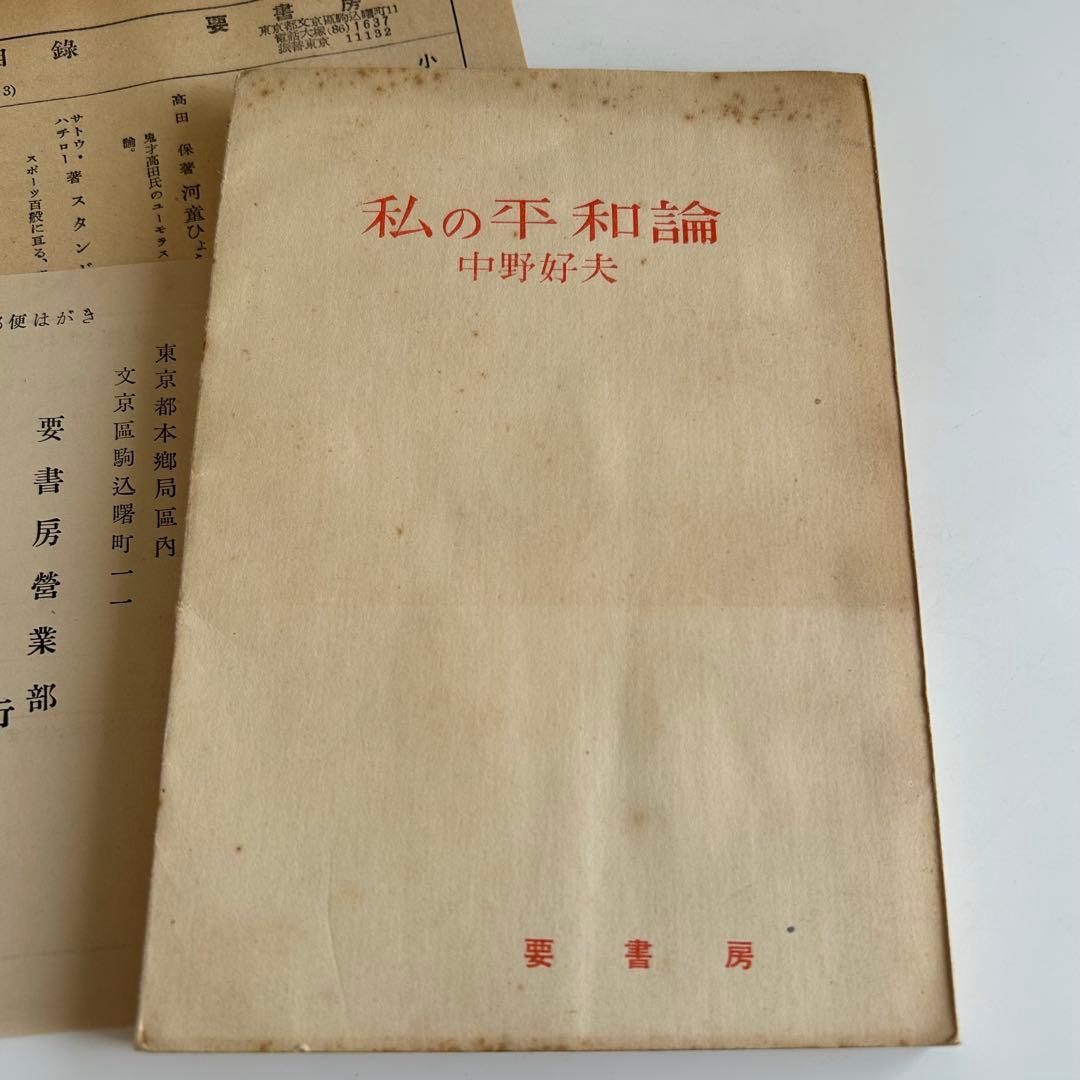 目錄
要書房
東京都文京區駒込曙町11
電話大塚(86)1637
振替東京 11132
3)
小
高田 保著 河童ひょ
鬼才高田氏のユーモラス
論。
サトウ・ハチロー著 スタンド
スポーツ百般に亘る、
便はがき
東京都本鄕局區內
文京區駒込曙町一一
要書房營業部
行
私の平和論
中野好夫
要書房